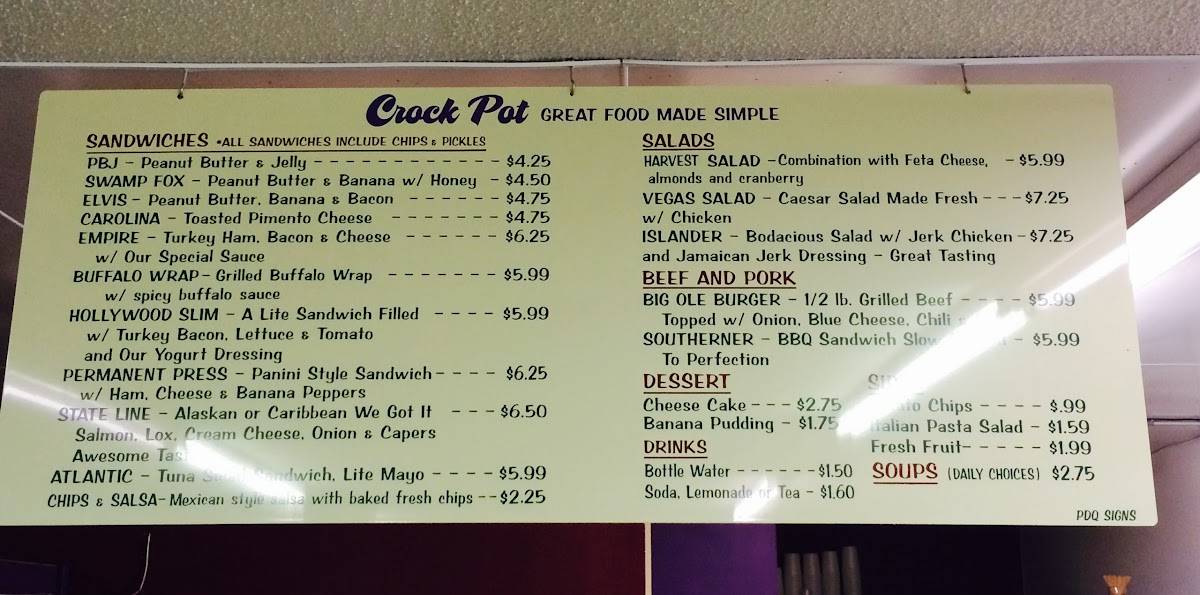 Crock Pot GREAT FOOD MADE SIMPLE
SANDWICHES •ALL SANDWICHES INCLUDE CHIPS & PICKLES
PBJ - Peanut Butter & Jelly - - - - - - - - - - - - $4.25
SWAMP FOX - Peanut Butter & Banana w/ Honey - $4.50
ELVIS - Peanut Butter, Banana & Bacon - - - - - - $4.75
CAROLINA - Toasted Pimento Cheese - - - - - - - $4.75
EMPIRE - Turkey Ham, Bacon & Cheese - - - - - - $6.25
w/ Our Special Sauce
BUFFALO WRAP - Grilled Buffalo Wrap - - - - - - - $5.99
w/ spicy buffalo sauce
HOLLYWOOD SLIM - A Lite Sandwich Filled - - - - $5.99
w/ Turkey Bacon, Lettuce & Tomato
and Our Yogurt Dressing
PERMANENT PRESS - Panini Style Sandwich - - - - $6.25
w/ Ham, Cheese & Banana Peppers
STATE LINE - Alaskan or Caribbean We Got It - - - $6.50
Salmon, Lox, Cream Cheese, Onion & Capers
Awesome
ATLANTIC - Tuna Sandwich, Lite Mayo - - - - $5.99
CHIPS & SALSA - Mexican style salsa with baked fresh chips - - $2.25
SALADS
HARVEST SALAD - Combination with Feta Cheese, - $5.99
almonds and cranberry
VEGAS SALAD - Caesar Salad Made Fresh - - - $7.25
w/ Chicken
ISLANDER - Bodacious Salad w/ Jerk Chicken - $7.25
and Jamaican Jerk Dressing - Great Tasting
BEEF AND PORK
BIG OLE BURGER - 1/2 lb. Grilled Beef - - - - $5.99
Topped w/ Onion, Blue Cheese, Chili
SOUTHERNER - BBQ Sandwich - $5.99
To Perfection
DESSERT
Cheese Cake - - - $2.75
Banana Pudding - $1.75
DRINKS
Bottle Water - - - - - - $1.50
Soda, Lemonade or Tea - $1.60
Chips - - - - $.99
Italian Pasta Salad - $1.59
Fresh Fruit - - - - $1.99
SOUPS (DAILY CHOICES) $2.75
PDQ SIGNS